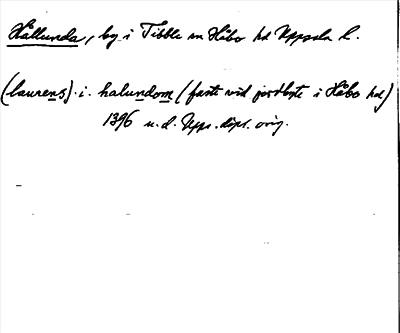 Hållunda, by i Tibble sn Håbo hd Uppsala l.
(laurens) . i . halundom (faste vid jordbyte i Håbo hd)
1396 u.d. Upps. dipl. orig.